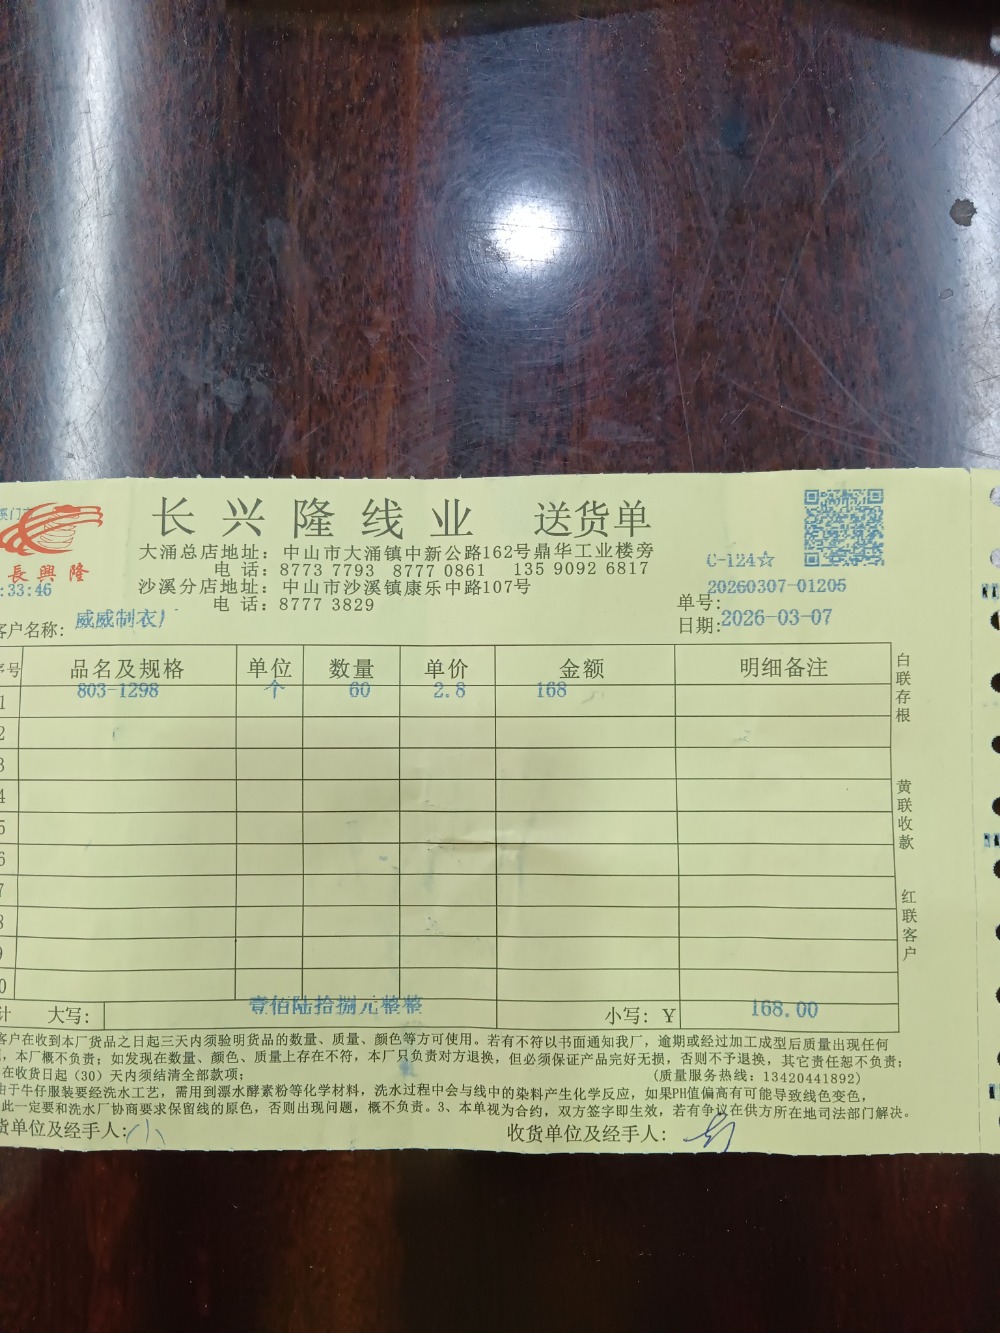 長興隆
:33:46
长兴隆线业 送货单
大涌总店地址：中山市大涌镇中新公路162号鼎华工业楼旁
电话：8773 7793 8777 0861 135 9092 6817
沙溪分店地址：中山市沙溪镇康乐中路107号
电话：8777 3829
C-124☆
单号：20260307-01205
日期：2026-03-07
客户名称：威威制衣厂
序号 品名及规格 单位 数量 单价 金额 明细备注
1 803-1298 个 60 2.8 168
2
3
4
5
6
7
8
9
0
计 大写：壹佰陆拾捌元整整 小写：Y 168.00
白联存根
黄联收款
红联客户
客户在收到本厂货品之日起三天内须验明货品的数量、质量、颜色等方可使用。若有不符以书面通知我厂，逾期或经过加工成型后质量出现任何
，本厂概不负责；如发现在数量、颜色、质量上存在不符，本厂只负责对方退换，但必须保证产品完好无损，否则不予退换，其它责任恕不负责；
在收货日起（30）天内须结清全部款项； （质量服务热线：13420441892）
由于牛仔服装要经洗水工艺，需用到漂水酵素粉等化学材料，洗水过程中会与线中的染料产生化学反应，如果PH值偏高有可能导致线色变色，
此一定要和洗水厂协商要求保留线的原色，否则出现问题，概不负责。3、本单视为合约，双方签字即生效，若有争议在供方所在地司法部门解决。
货单位及经手人： 收货单位及经手人：